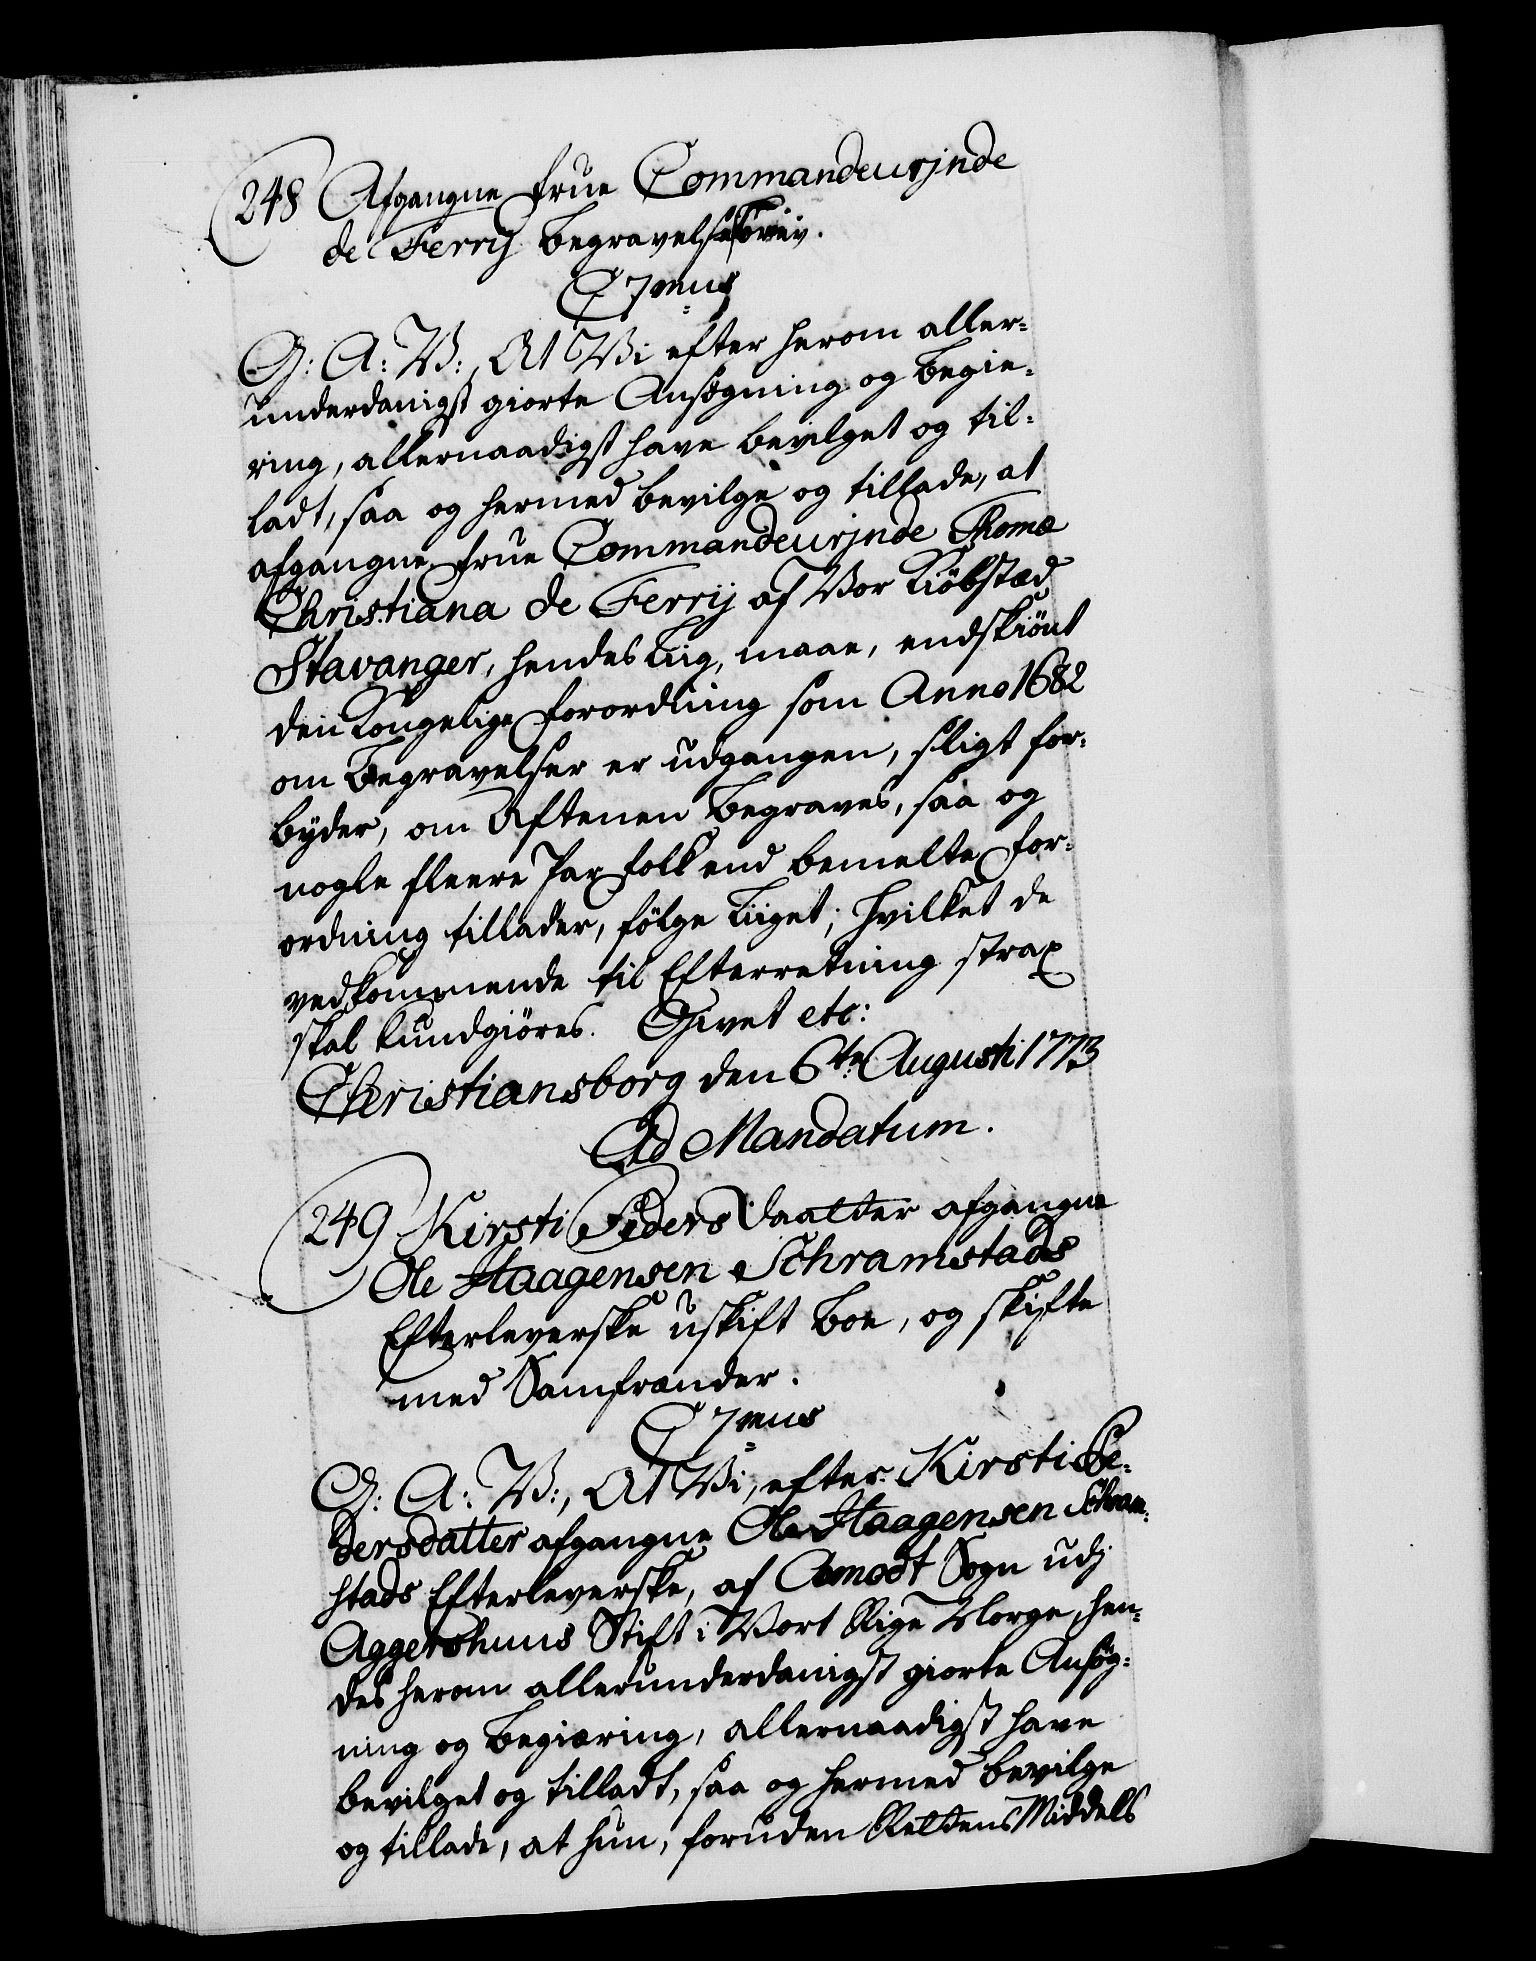 248 Afgangne Frue Commandeurjnde
de Ferrij Begravelsesbrev.
C 7mus
G: A: V:, At Vi efter herom aller-
underdanigst giorte Ansøgning og Begie-
ring, allernaadigst have bevilget og til-
ladt, saa og hermed bevilge og tillade, at
afgangne Frue Commandeurjnde Thomæ
Christiana de Ferrij af Vor Kiöbstæd
Stavanger, hendes Liig, maae, endskiönt
den Kongelige Forordning som Anno 1682
om Begravelser er udgangen, sligt for-
byder, om Aftenen begraves, saa og
nogle fleere Par Folk end bemelte For-
ordning tillader, følge Liiget; hvilket de
vedkommende til Efterretning strax
skal kundgiöres. Givet etc:
Christiansborg den 6te Augusti 1773
Ad Mandatum.
249 Kirsti Peders Daatter afgangne
Ole Haagensen Schramstads
Efterleverske uskift Boe, og skifte
med Samfrænder.
C 7mus
G: A: V:, At Vi, efter Kirsti Pe-
dersdatter afgangne Ole Haagensen Schram-
stads Efterleverske, af Amodt Sogn udj
Aggershuus Stift i Vort Rige Norge, hen-
des herom allerunderdanigst giorte Ansøg-
ning og Begiæring, allernaadigst have
bevilget og tilladt, saa og hermed bevilge
og tillade, at hun, foruden Rettens Middels